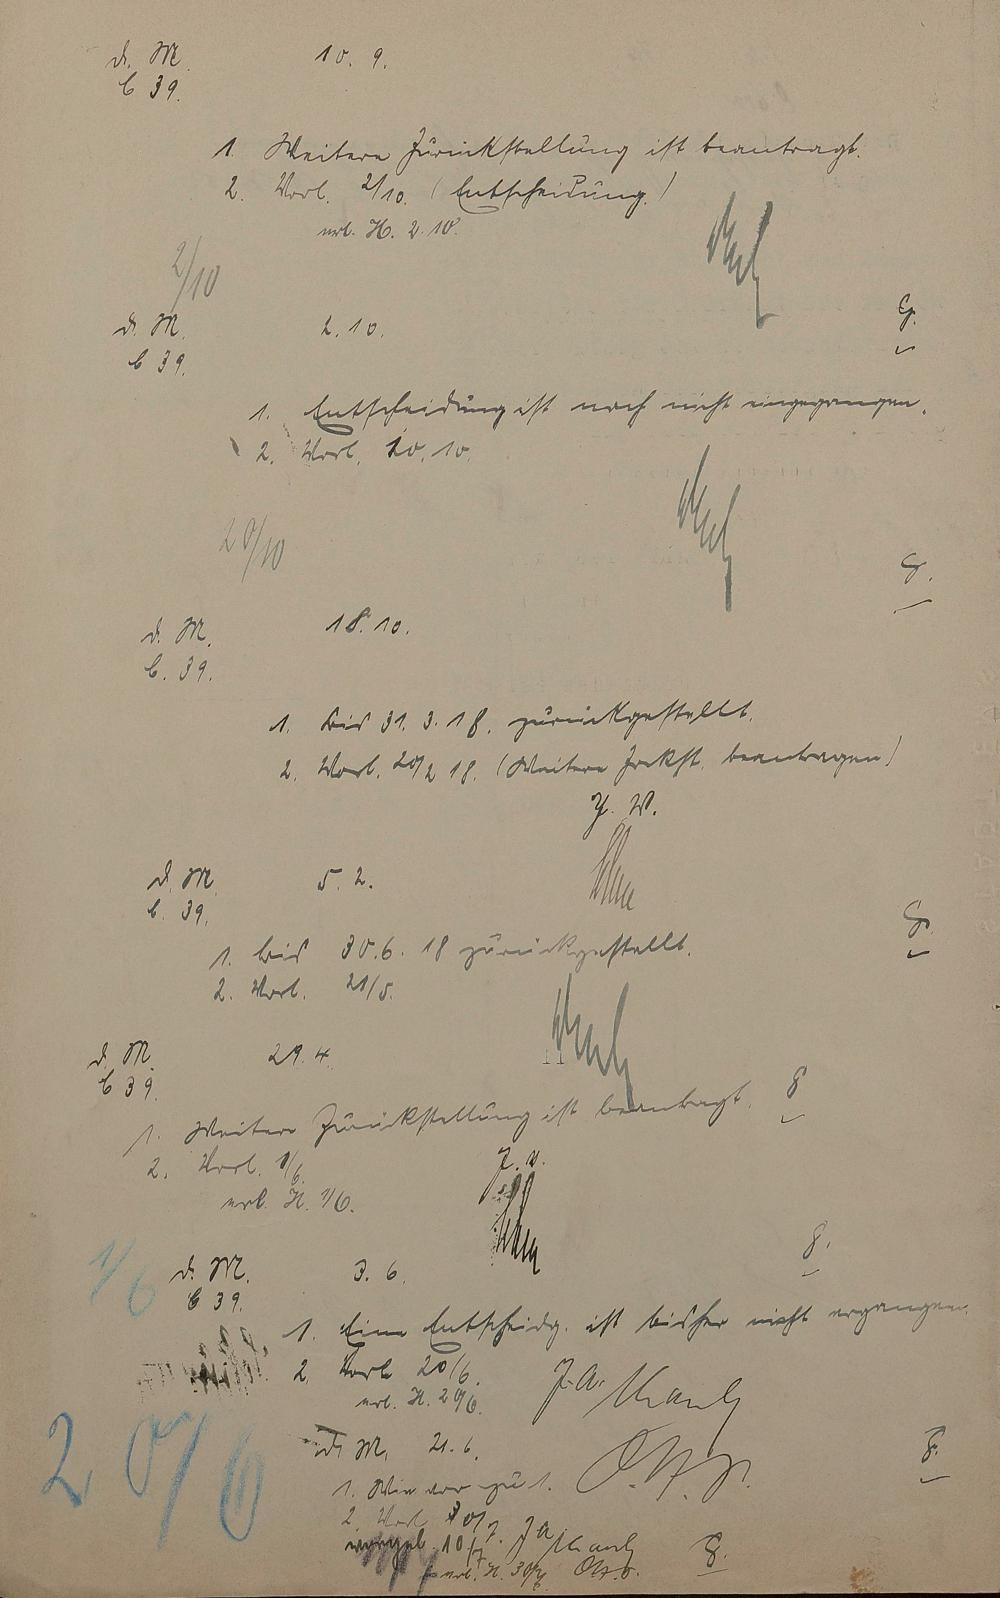 d. M. 10. 9.
C 39.
1. Weitere Zurückstellung ist beantragt.
2. Vorl. 2/10. (Entscheidung.)
erl. H. 2. 10.
2/10
d. M. 2. 10.
C 39.
1. Entscheidung ist noch nicht eingegangen.
2. Vorl. 20. 10.
20/10
d. M. 18. 10.
C. 39.
1. bis 31. 3. 18. zurückgestellt.
2. Vorl. 20/2 18. (Weitere Zrckst. beantragen)
J. V.
d. M. 5. 2.
C. 39.
1. bis 30. 6. 18 zurückgestellt.
2. Vorl. 21/5.
11
d. M. 29. 4.
C 39.
1. Weitere Zurückstellung ist beantragt.
2. Vorl. 1/6.
J. V.
erl. H. 1/6.
1/6
d. M. 3. 6.
C 39.
1. Eine Entscheidg. ist bisher nicht ergangen.
2. Vorl. 20/6. J. A.
erl. H. 20/6.
20/6
d. M. 21. 6.
1. Wie vor zu 1.
2. Vorl. J. A.
vorgel. 10/7
erl. H.